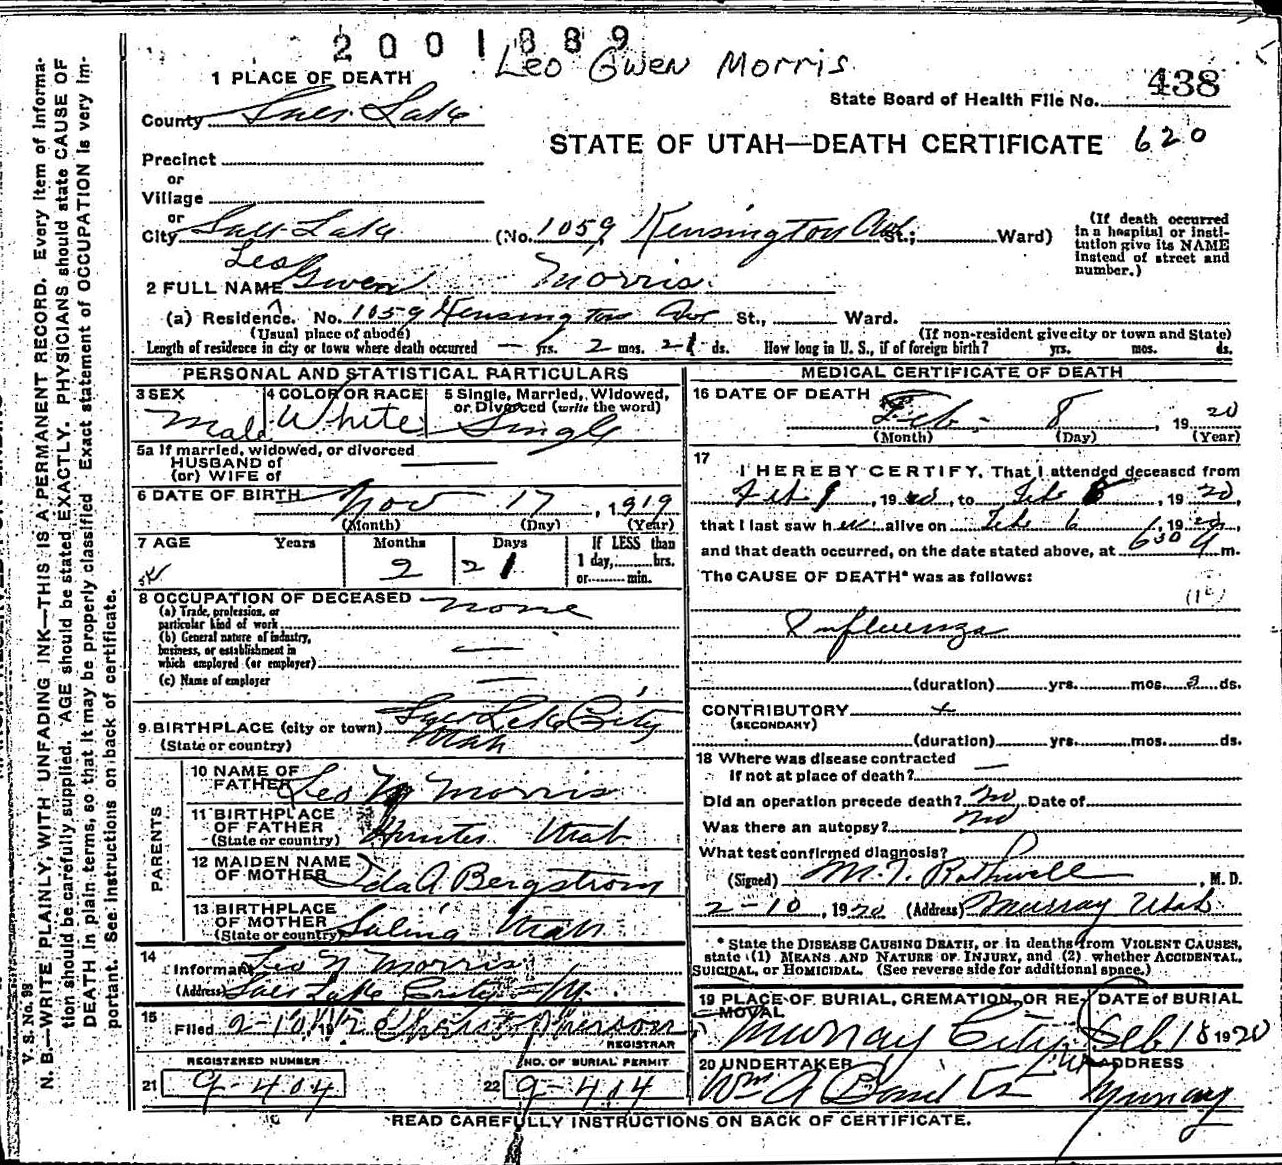 2001889
Leo Gwen Morris
1 PLACE OF DEATH
438
State Board of Health File No.
County Salt Lake
STATE OF UTAH—DEATH CERTIFICATE 620
Precinct
or
Village
or
City Salt Lake (No. 1059 Kensington Ave St.; Ward)
(If death occurred in a hospital or institution give its NAME instead of street and number.)
Leo
2 FULL NAME Gwen Morris.
(a) Residence. No. 1059 Kensington Ave St., Ward.
(Usual place of abode) (If non-resident give city or town and State)
Length of residence in city or town where death occurred — yrs. 2 mos. 21 ds. How long in U. S., if of foreign birth? yrs. mos. ds.
PERSONAL AND STATISTICAL PARTICULARS
3 SEX Male
4 COLOR OR RACE White
5 Single, Married, Widowed, or Divorced (write the word) Single
5a If married, widowed, or divorced
HUSBAND of
(or) WIFE of
6 DATE OF BIRTH Nov 17, 1919
(Month) (Day) (Year)
7 AGE Years Months Days If LESS than
2 21 1 day, hrs.
or min.
8 OCCUPATION OF DECEASED none
(a) Trade, profession, or
particular kind of work
(b) General nature of industry,
business, or establishment in
which employed (or employer)
(c) Name of employer
9 BIRTHPLACE (city or town) Salt Lake City
(State or country) Utah
PARENTS
10 NAME OF FATHER Leo N Morris
11 BIRTHPLACE OF FATHER Hunter Utah
(State or country)
12 MAIDEN NAME OF MOTHER Ida A Bergstrom
13 BIRTHPLACE OF MOTHER Salina Utah
(State or country)
14 Informant Leo N Morris
(Address) Salt Lake City Ut.
15 Filed 2-10, 19
REGISTRAR
REGISTERED NUMBER
21 9-404
NO. OF BURIAL PERMIT
22 9-414
MEDICAL CERTIFICATE OF DEATH
16 DATE OF DEATH Feb. 8, 1920
(Month) (Day) (Year)
17 I HEREBY CERTIFY, That I attended deceased from
Feb, 19, to Feb 8, 1920,
that I last saw h alive on Feb 6, 1920,
and that death occurred, on the date stated above, at 630 a m.
The CAUSE OF DEATH* was as follows:
Influenza
(duration) yrs. mos. ds.
CONTRIBUTORY
(SECONDARY)
(duration) yrs. mos. ds.
18 Where was disease contracted
if not at place of death? —
Did an operation precede death? no Date of
Was there an autopsy? no
What test confirmed diagnosis?
(Signed) M. T. Rothwell, M. D.
2-10, 1920 (Address) Murray Utah
* State the DISEASE CAUSING DEATH, or in deaths from VIOLENT CAUSES,
state (1) MEANS AND NATURE OF INJURY, and (2) whether ACCIDENTAL,
SUICIDAL, or HOMICIDAL. (See reverse side for additional space.)
19 PLACE OF BURIAL, CREMATION, OR REMOVAL DATE of BURIAL
Murray City Feb 10 1920
20 UNDERTAKER ADDRESS
Wm A Murray
READ CAREFULLY INSTRUCTIONS ON BACK OF CERTIFICATE.
V. S. No. 98
N. B.—WRITE PLAINLY, WITH UNFADING INK—THIS IS A PERMANENT RECORD. Every item of informa-
tion should be carefully supplied. AGE should be stated EXACTLY. PHYSICIANS should state CAUSE OF
DEATH in plain terms, so that it may be properly classified. Exact statement of OCCUPATION is very im-
portant. See instructions on back of certificate.